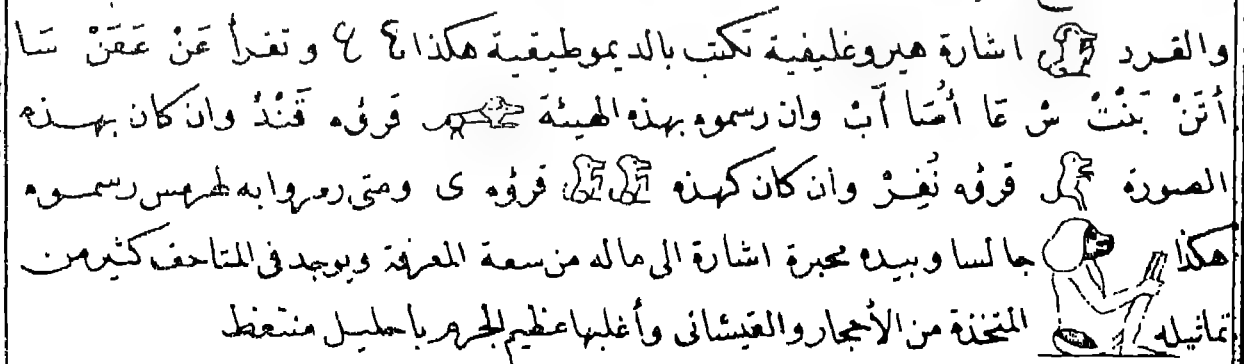 والقرد اشارة هيروغليفية تكتب بالديموطيقية هكذا و تقرأ عَنْ عَقَنْ سَا
أَتَنْ بَنْتْ شْ عَا أُمَتَا آبْ وان رسموه بهذه الهيئة قرؤه قَنْدْ وان كان بهذه
الصورة قرؤه نُفِرْ وان كان كهذه قرؤه ى ومتى رمزوا به لهرمس رسموه
هكذا جالسا وبيده محبرة اشارة الى ماله من سعة المعرفة ويوجد فى المتاحف كثير من
تماثيله المتخذة من الأحجار والقيشانى وأغلبها عظيم الجرم باحليل منتعظ